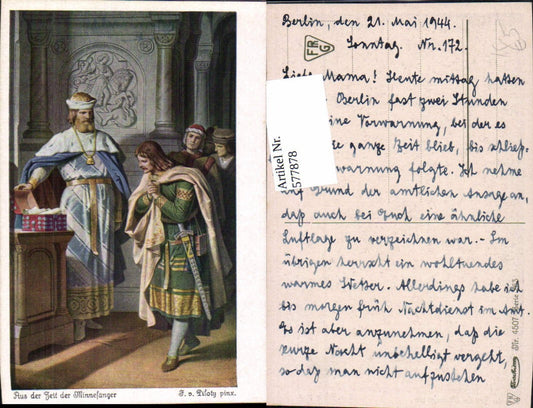 Aus der Zeit der Minnesänger
F. v. Piloty pinx.
Berlin, den 21. Mai 1944.
Sonntag. Nr. 172.
Liebe Mama! Heute mittag hatten
Berlin fast zwei Stunden
eine Vorwarnung, bei der es
ganze Zeit blieb, bis schließ-
warnung folgte. Ich nehme
auf Grund der amtlichen Ansage an,
daß auch bei Euch eine ähnliche
Luftlage zu verzeichnen war. - Im
übrigen herrscht ein wohltuendes
warmes Wetter. Allerdings habe ich
bis morgen früh Nachtdienst im Amt.
Es ist aber anzunehmen, daß die
kurze Nacht unbehelligt vergeht,
so daß man nicht aufzustehen
Artikel Nr.
577878
FRG
Str. 4507